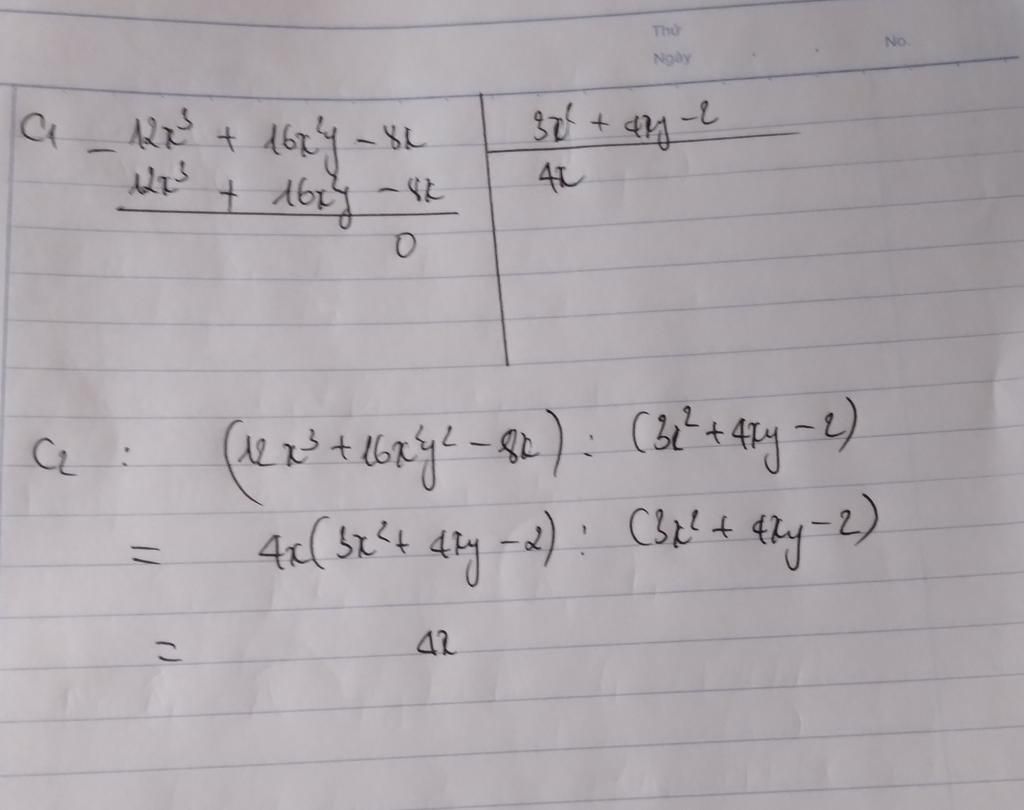 Thứ
Ngày
No.
C1 - 12x³ + 16x²y - 8x | 3x² + 4xy - 2
12x³ + 16x²y - 8x | 4x
0
C2 : (12x³ + 16x²y² - 8x) : (3x² + 4xy - 2)
= 4x(3x² + 4xy - 2) : (3x² + 4xy - 2)
= 4x